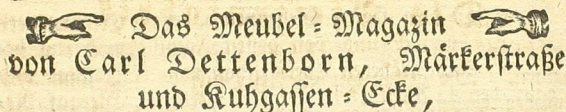 ☞ Das Meubel=Magazin ☜
von Carl Dettenborn, Märkerstraße
und Kuhgassen=Ecke,